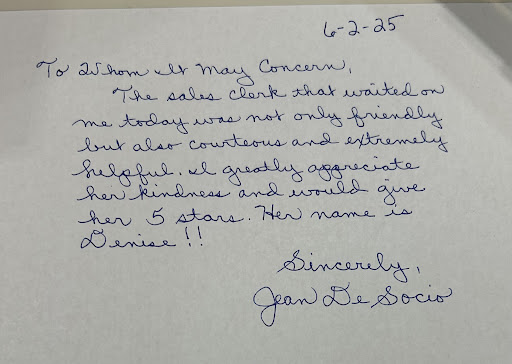 6-2-25
To Whom It May Concern,
The sales clerk that waited on
me today was not only friendly
but also courteous and extremely
helpful. I greatly appreciate
her kindness and would give
her 5 stars. Her name is
Denise!!
Sincerely,
Jean De Socio